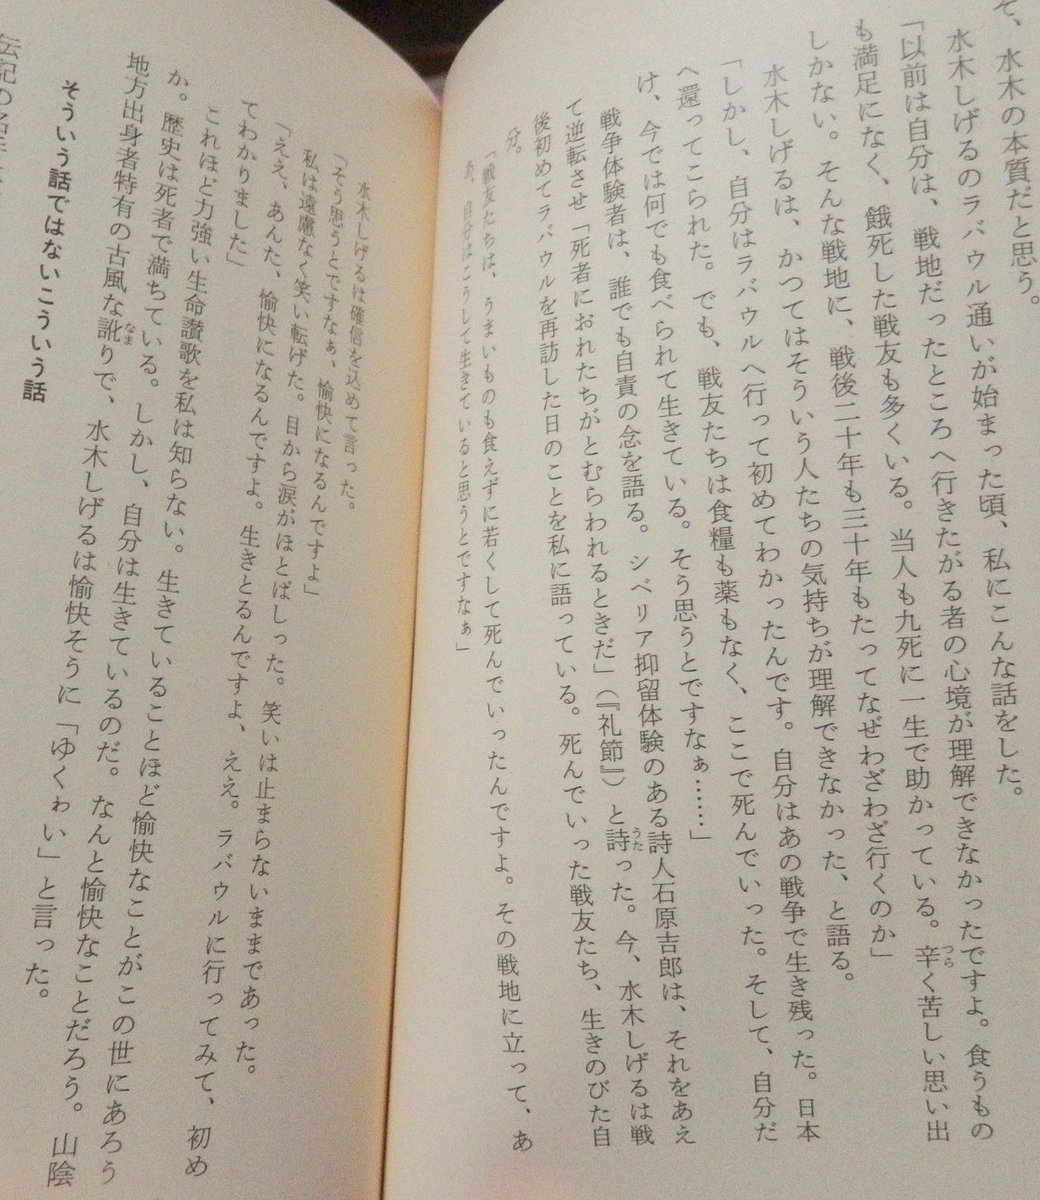 て、水木の本質だと思う。
水木しげるのラバウル通いが始まった頃、私にこんな話をした。
「以前は自分は、戦地だったところへ行きたがる者の心境が理解できなかったですよ。食うもの
も満足になく、餓死した戦友も多くいる。当人も九死に一生で助かっている。辛く苦しい思い出
しかない。そんな戦地に、戦後二十年も三十年もたってなぜわざわざ行くのか」
水木しげるは、かつてはそういう人たちの気持ちが理解できなかった、と語る。
「しかし、自分はラバウルへ行って初めてわかったんです。自分はあの戦争で生き残った。日本
へ還ってこられた。でも、戦友たちは食糧も薬もなく、ここで死んでいった。そして、自分だ
け、今では何でも食べられて生きている。そう思うとですなぁ……」
戦争体験者は、誰でも自責の念を語る。シベリア抑留体験のある詩人石原吉郎は、それをあえ
て逆転させ「死者におれたちがとむらわれるときだ」(『礼節』)と詩った。今、水木しげるは戦
後初めてラバウルを再訪した日のことを私に語っている。死んでいった戦友たち、生きのびた自
分。
「戦友たちは、うまいものも食えずに若くして死んでいったんですよ。その戦地に立って、あ
あ、自分はこうして生きていると思うとですなぁ」
水木しげるは確信を込めて言った。
「そう思うとですなぁ、愉快になるんですよ」
私は遠慮なく笑い転げた。目から涙がほとばしった。笑いは止まらないままであった。
「ええ、あんた、愉快になるんですよ。生きとるんですよ、ええ。ラバウルに行ってみて、初め
てわかりました」
これほど力強い生命讃歌を私は知らない。生きていることほど愉快なことがこの世にあろう
か。歴史は死者で満ちている。しかし、自分は生きているのだ。なんと愉快なことだろう。山陰
地方出身者特有の古風な訛りで、水木しげるは愉快そうに「ゆくゎい」と言った。
そういう話ではないこういう話
伝記の名手